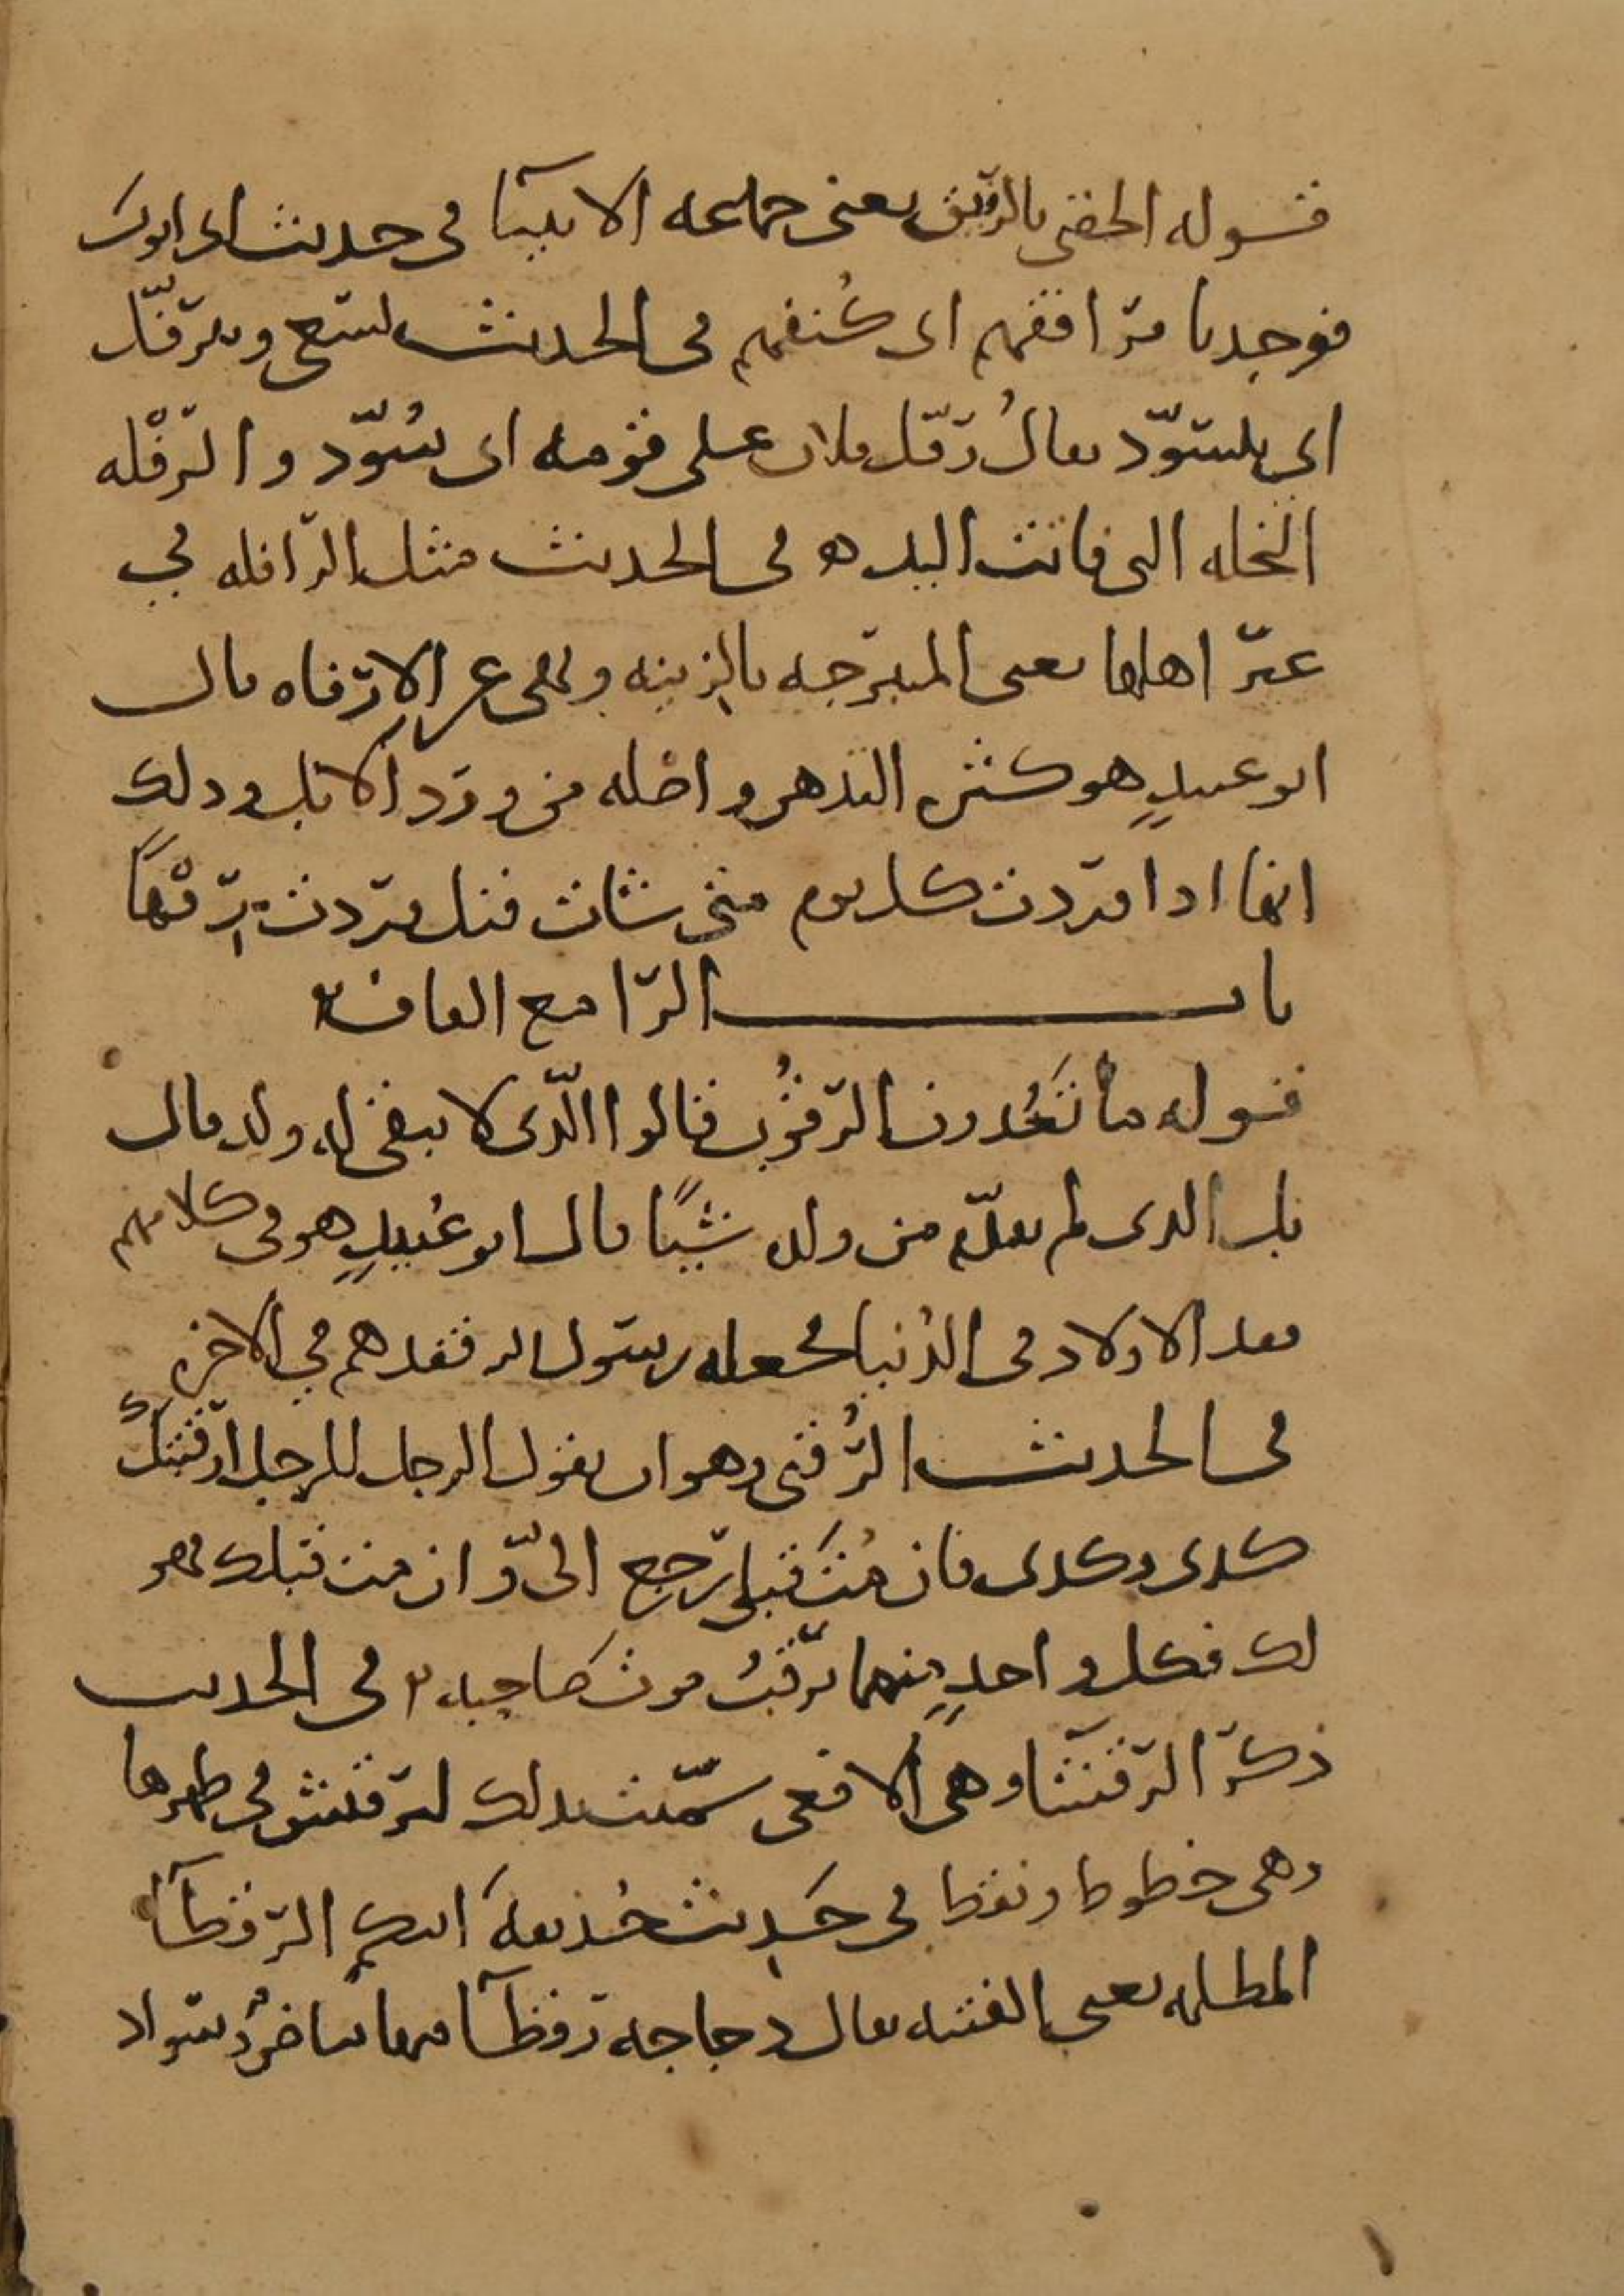 قوله الحقني بالرفيق يعني جماعه الانبيآ في حديث ابي ايوب
فوجدنا مرافقهم اي كنفهم في الحديث يسع ويترفّل
اي يتسوّد يقال رَفّل فلان على قومه اي سُوّد والرَّقْله
النخله التي فاتت اليد ه في الحديث مثل الرّافله في
غيرّ اهلها يعني المتبرّجه بالزينه ونهى عن الارفاه قال
ابو عبيدٍ هو كثره التدهن واصله من ورد الابل وذلك
انها اذا وردت كل يوم متى شات قيل وردت رِفْهاً
باب الرا مع القاف
قوله ما تَعُدون الرقُوب قالوا الّذي لا يبقى له ولد قال
بل الذي لم يقدّم من ولده شيًا قال ابو عُبيدٍ هو في كلامهم
فقد الاولاد في الدُنيا فجعله رسول الله فقدهم في الاخره
في الحديث الرُّقبى وهو ان يقول الرجل للرجل ارقبتك
كدى وكدى فان مُتَّ قبلي رجع الىّ وان مت قبلك فهو
لك فكل واحدٍ منهما يرقُبُ موت صاحبه في الحديث
ذكر الرقشا وهي الافعى سمّيت بذلك لترقيش في ظهرها
وهي خطوط ونقط في حَديث حُذيفه اتتكم الرقطآ
المظلمه يعني الفتنه يقال دجاجه رقطآ فيها بياض وسواد